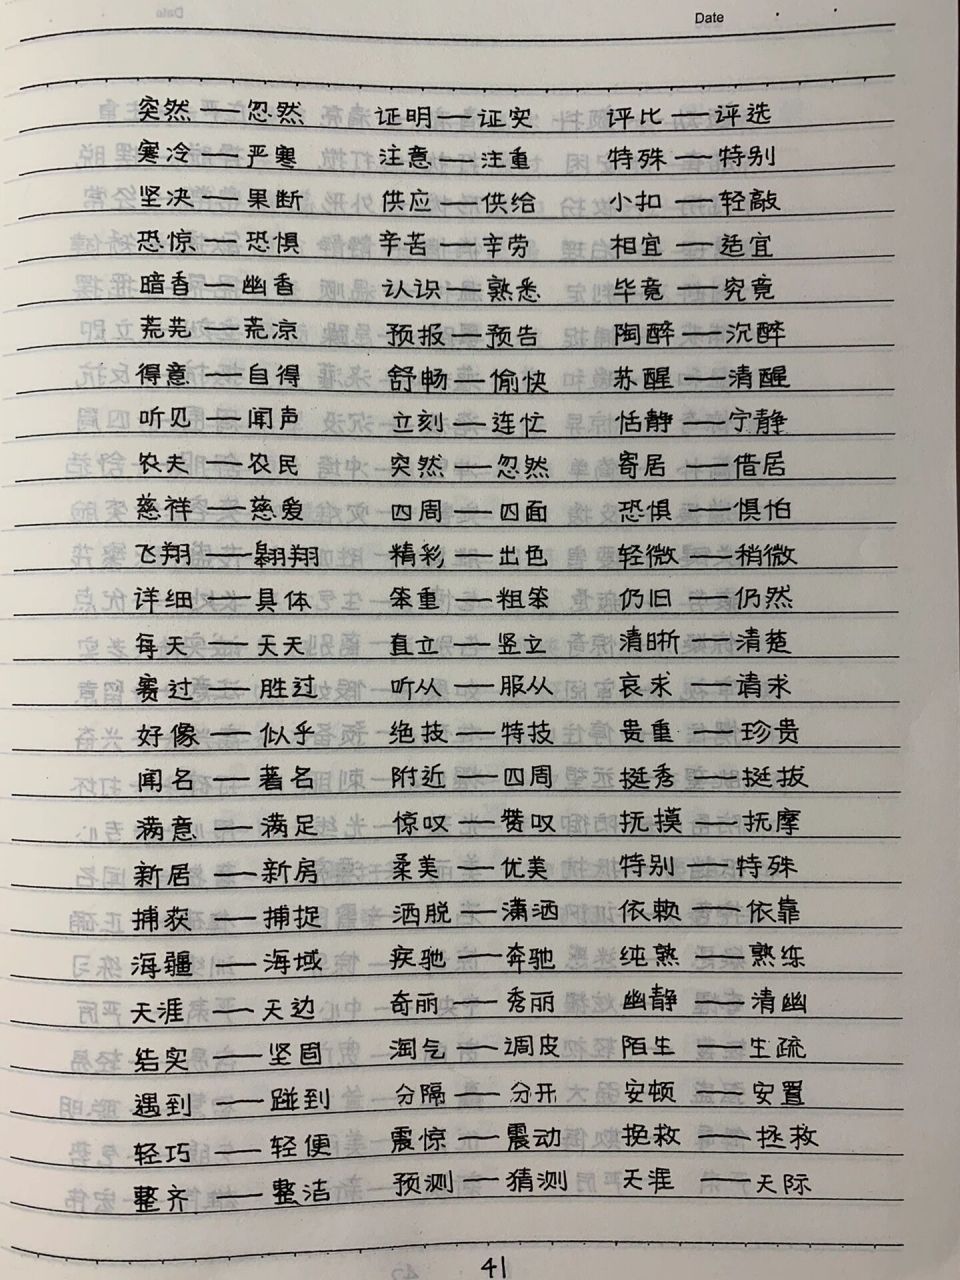 Date
突然——忽然 证明——证实 评比——评选
寒冷——严寒 注意——注重 特殊——特别
坚决——果断 供应——供给 小扣——轻敲
恐惊——恐惧 辛苦——辛劳 相宜——适宜
暗香——幽香 认识——熟悉 毕竟——究竟
荒芜——荒凉 预报——预告 陶醉——沉醉
得意——自得 舒畅——愉快 苏醒——清醒
听见——闻声 立刻——连忙 恬静——宁静
农夫——农民 突然——忽然 寄居——借居
慈祥——慈爱 四周——四面 恐惧——惧怕
飞翔——翱翔 精彩——出色 轻微——稍微
详细——具体 笨重——粗笨 仍旧——仍然
每天——天天 直立——竖立 清晰——清楚
赛过——胜过 听从——服从 哀求——请求
好像——似乎 绝技——特技 贵重——珍贵
闻名——著名 附近——四周 挺秀——挺拔
满意——满足 惊叹——赞叹 抚摸——抚摩
新居——新房 柔美——优美 特别——特殊
捕获——捕捉 洒脱——潇洒 依赖——依靠
海疆——海域 疾驰——奔驰 纯熟——熟练
天涯——天边 奇丽——秀丽 幽静——清幽
结实——坚固 淘气——调皮 陌生——生疏
遇到——碰到 分隔——分开 安顿——安置
轻巧——轻便 震惊——震动 挽救——拯救
整齐——整洁 预测——猜测 天涯——天际
41